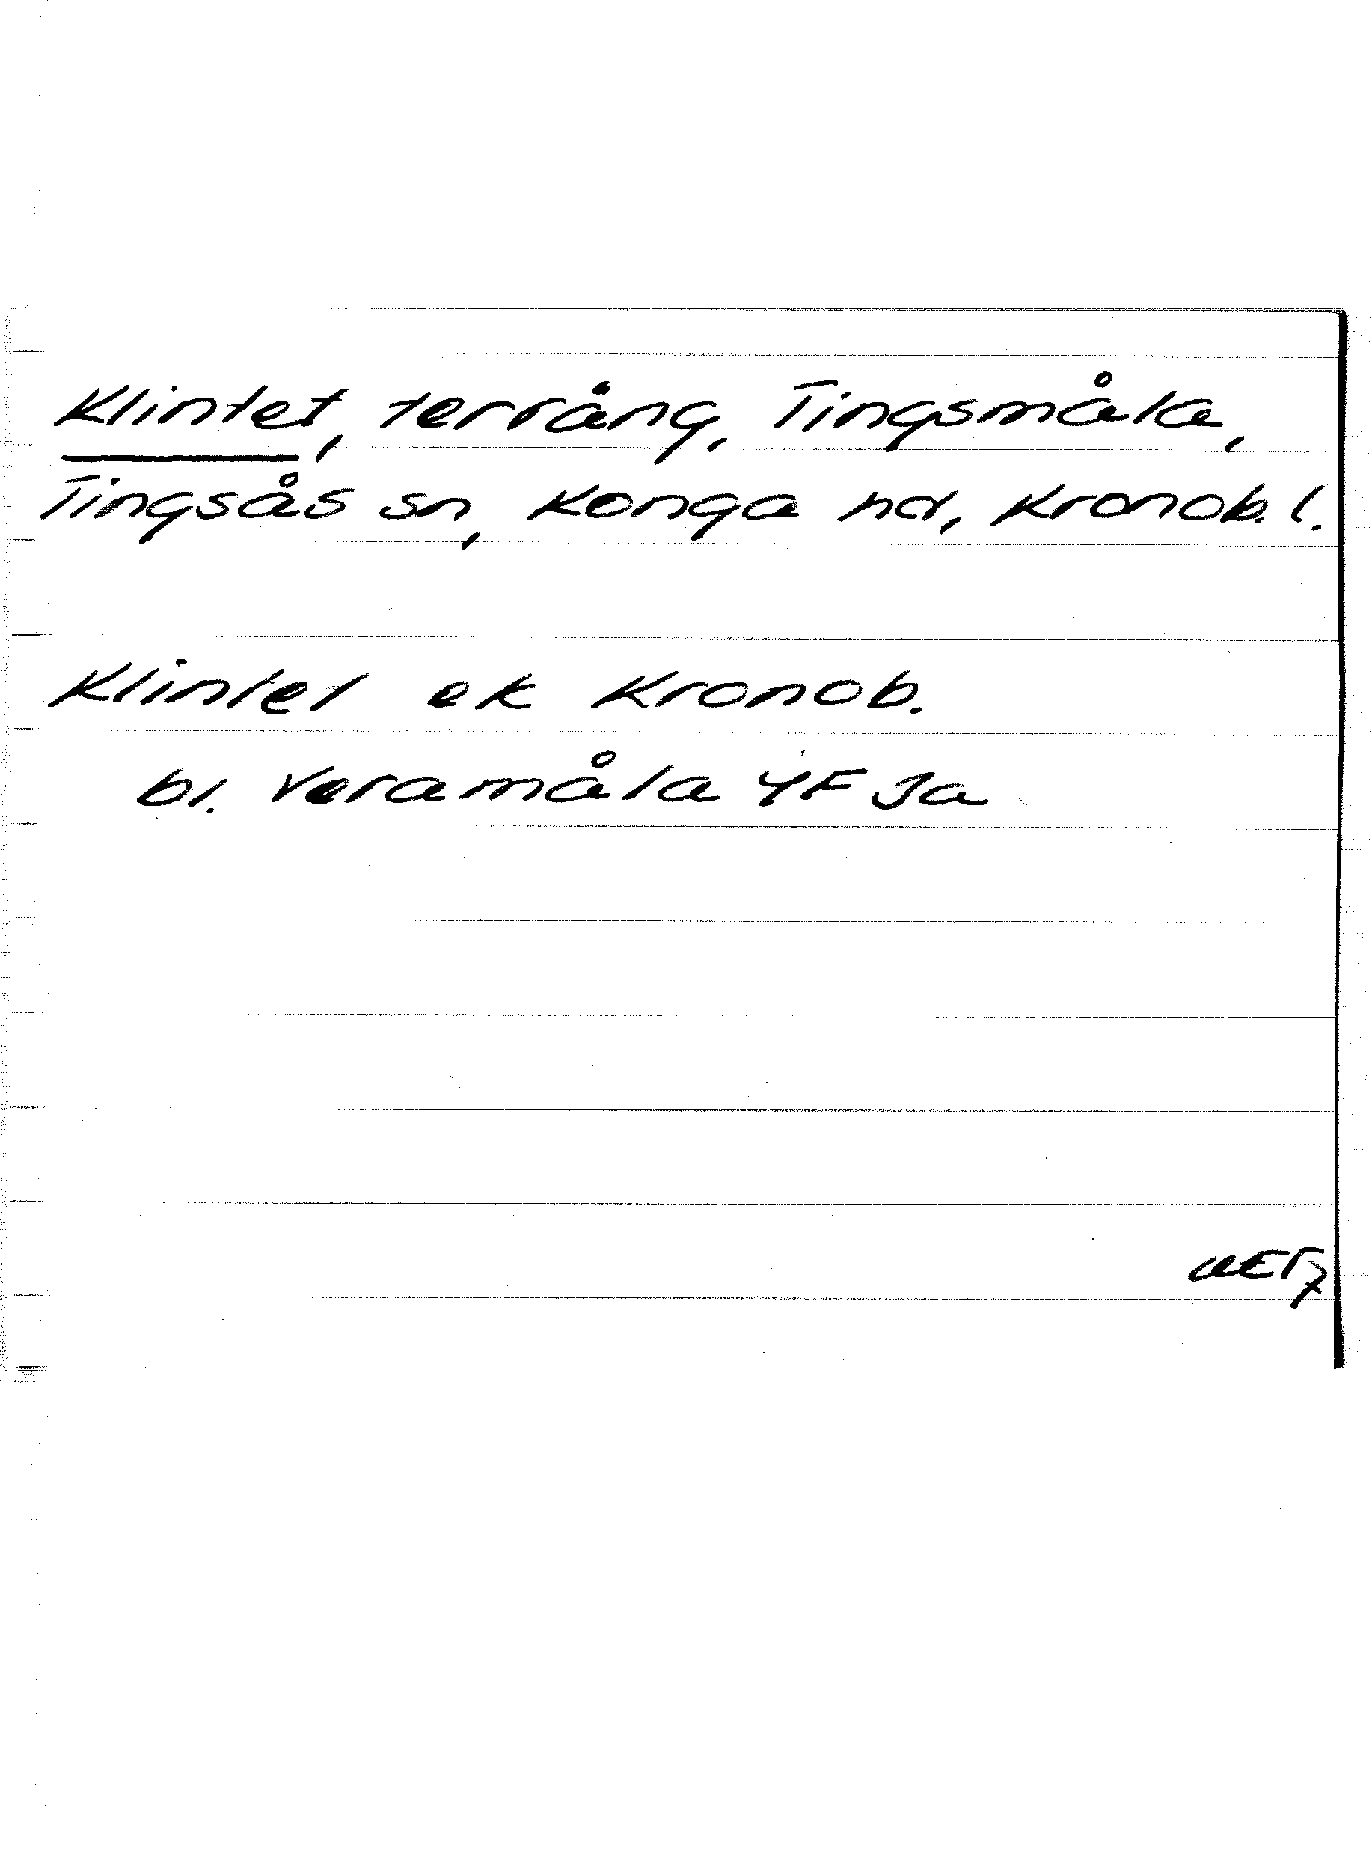 Klintet, terräng, Tingsmåla,
Tingsås sn, Konga hd, Kronob. l.
Klintet ek Kronob.
bl. Veramåla 4F Ja